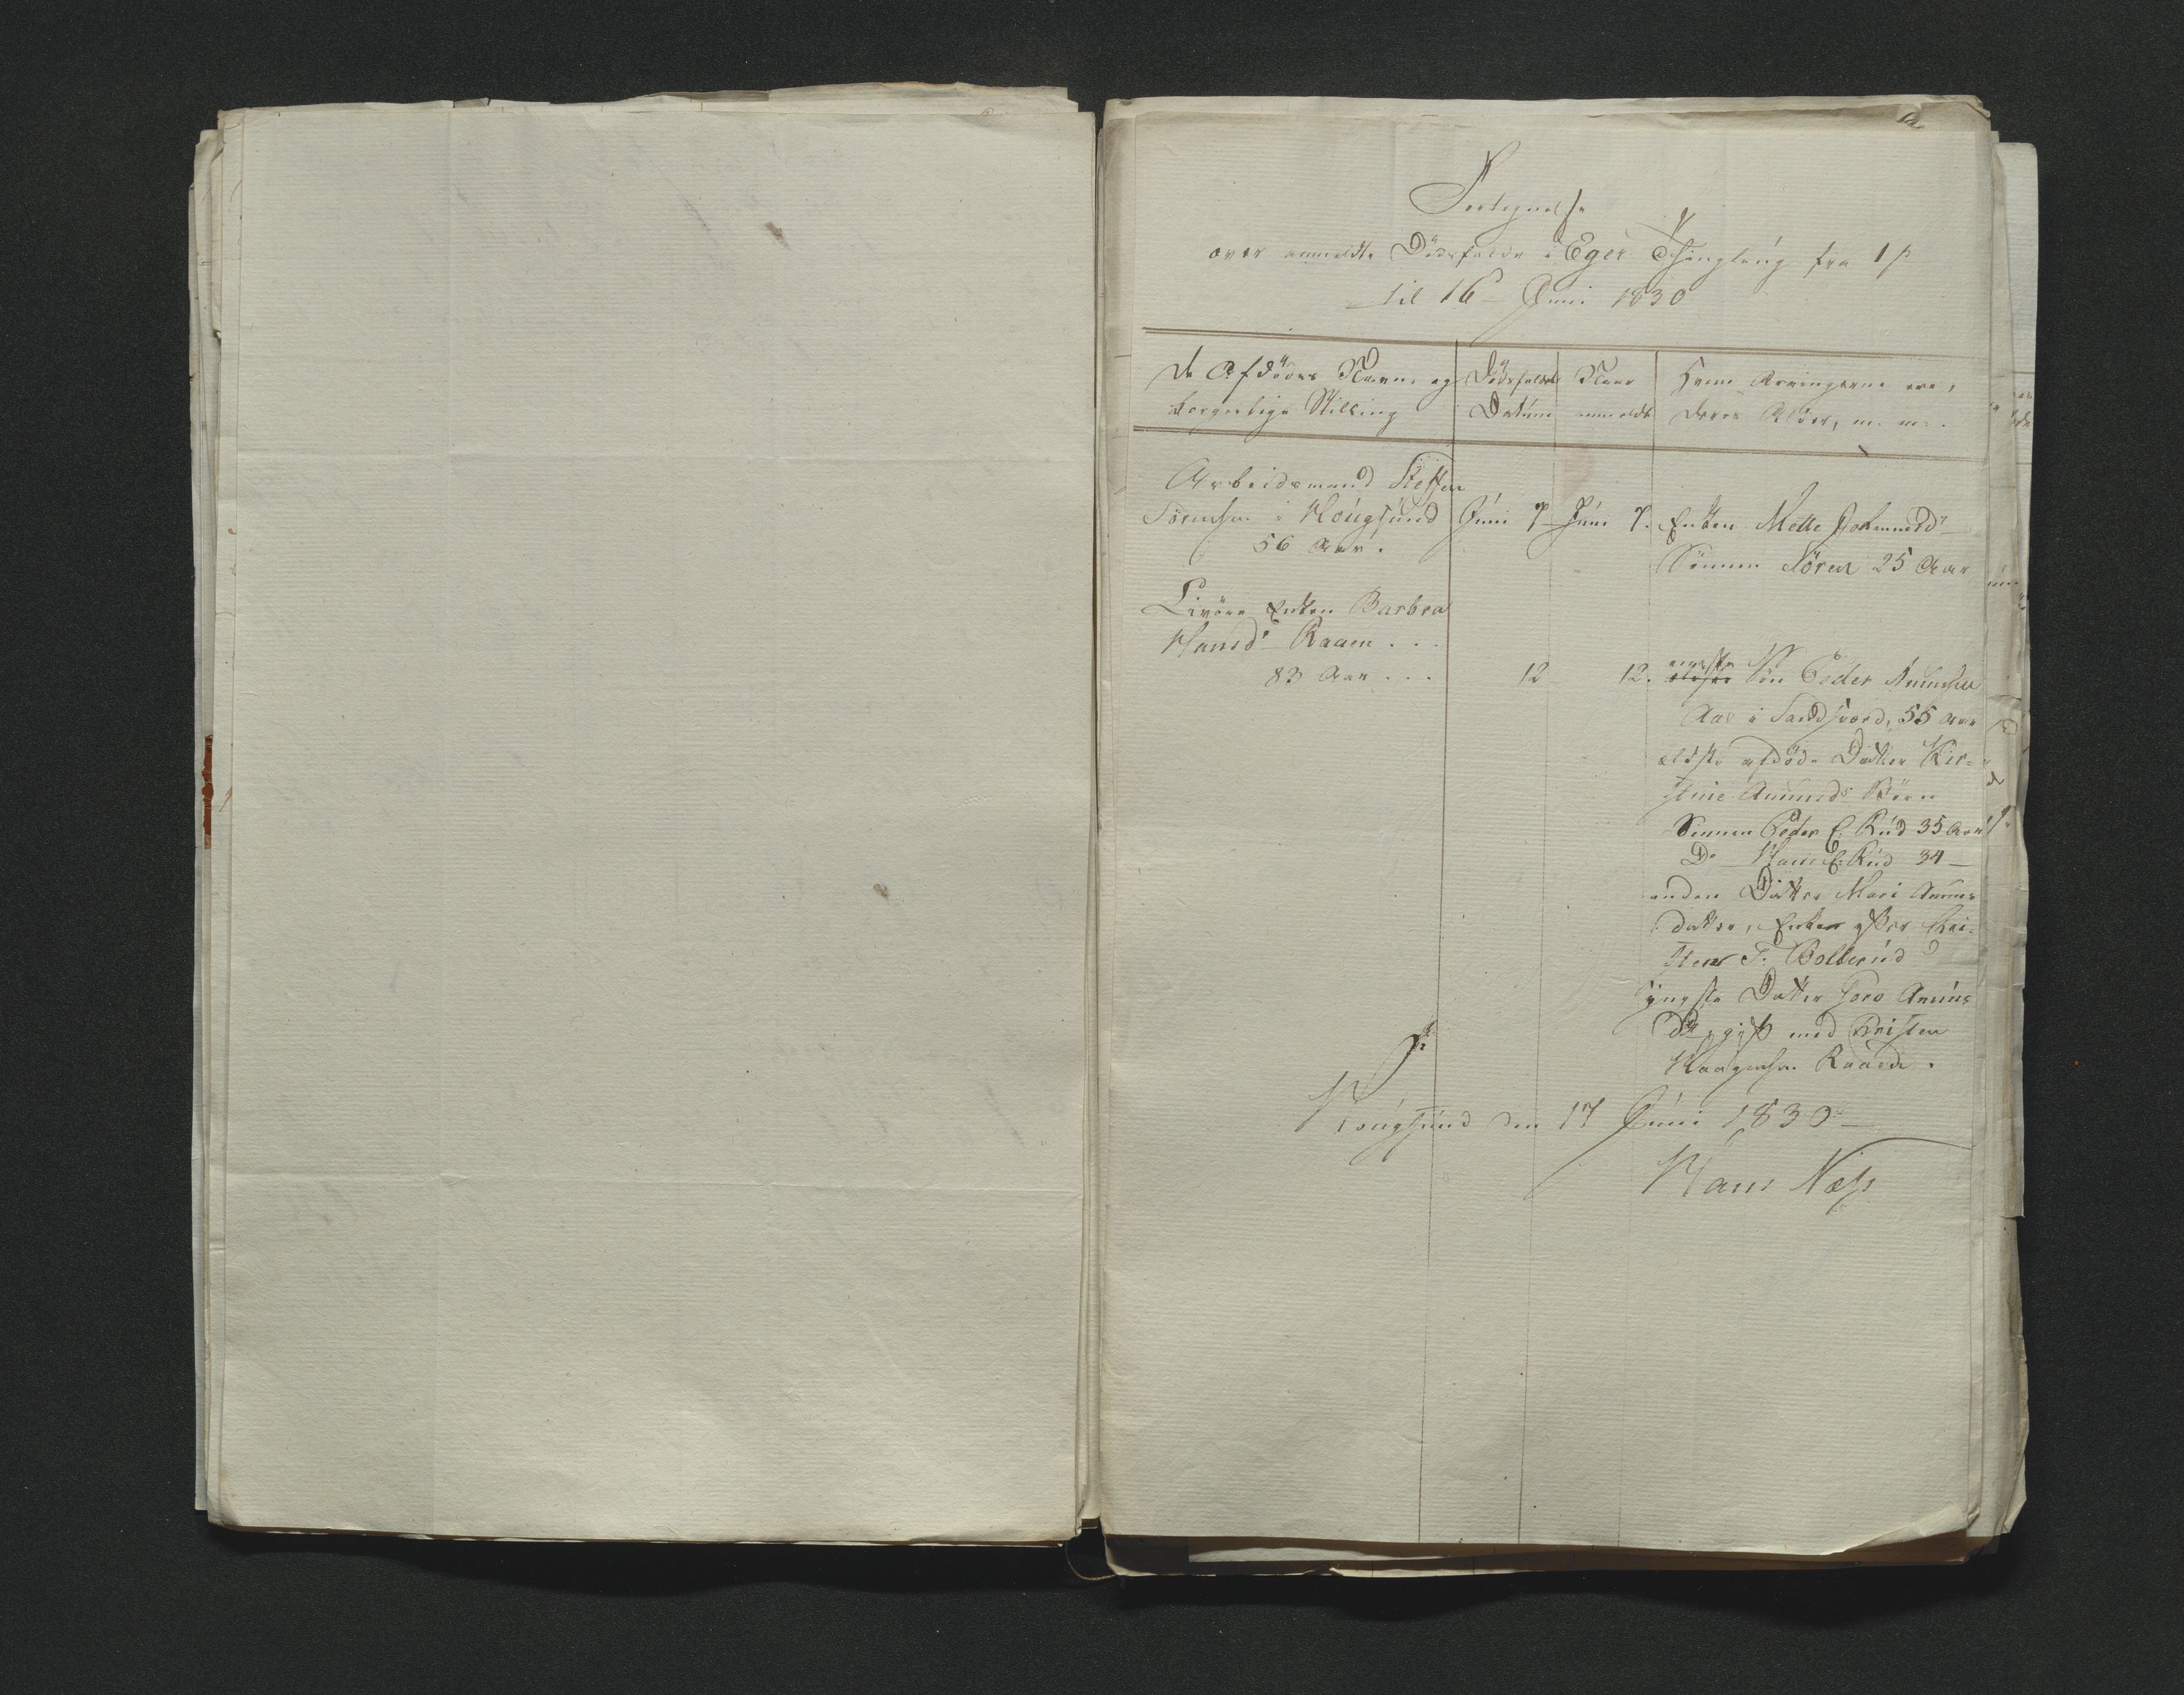 Fortegnelse
over anmeldte Dödsfalde i Eger Thinglaug fra 1ste
til 16 Juni 1830
De Afdödes Navne og borgerlige Stilling
Dödsfaldets Datum
Naar anmeldt
Hvem Arvingerne ere, deres Alder, m. m.
Arbeidsmand Steffen
Sörensen i Hougsund Juni 7 Juni 7. Enken Mette Johannesd
56 Aar.
Sönnen Sören 25 Aar
Livöre Enken Barbra
Hansd Raaen . . .
83 Aar . . . 12 12. eneste ældste Sön Peder Amundsen
Aas i Sandsværd, 55 Aar
ældste afdöde Datter Kir-
stine Amunds Börn
Sönnen Peder E. Rud 35 Aar
Do Hans E. Rud 34 —
anden Datter Mari Amuns
datter, Enke efter Chri-
sten T. Bollerud
yngste Datter Goro Amuns
Dtr gift med Kristen
Haagensen Raaen.
Hougsund den 17 Juni 1830
Hans Næss